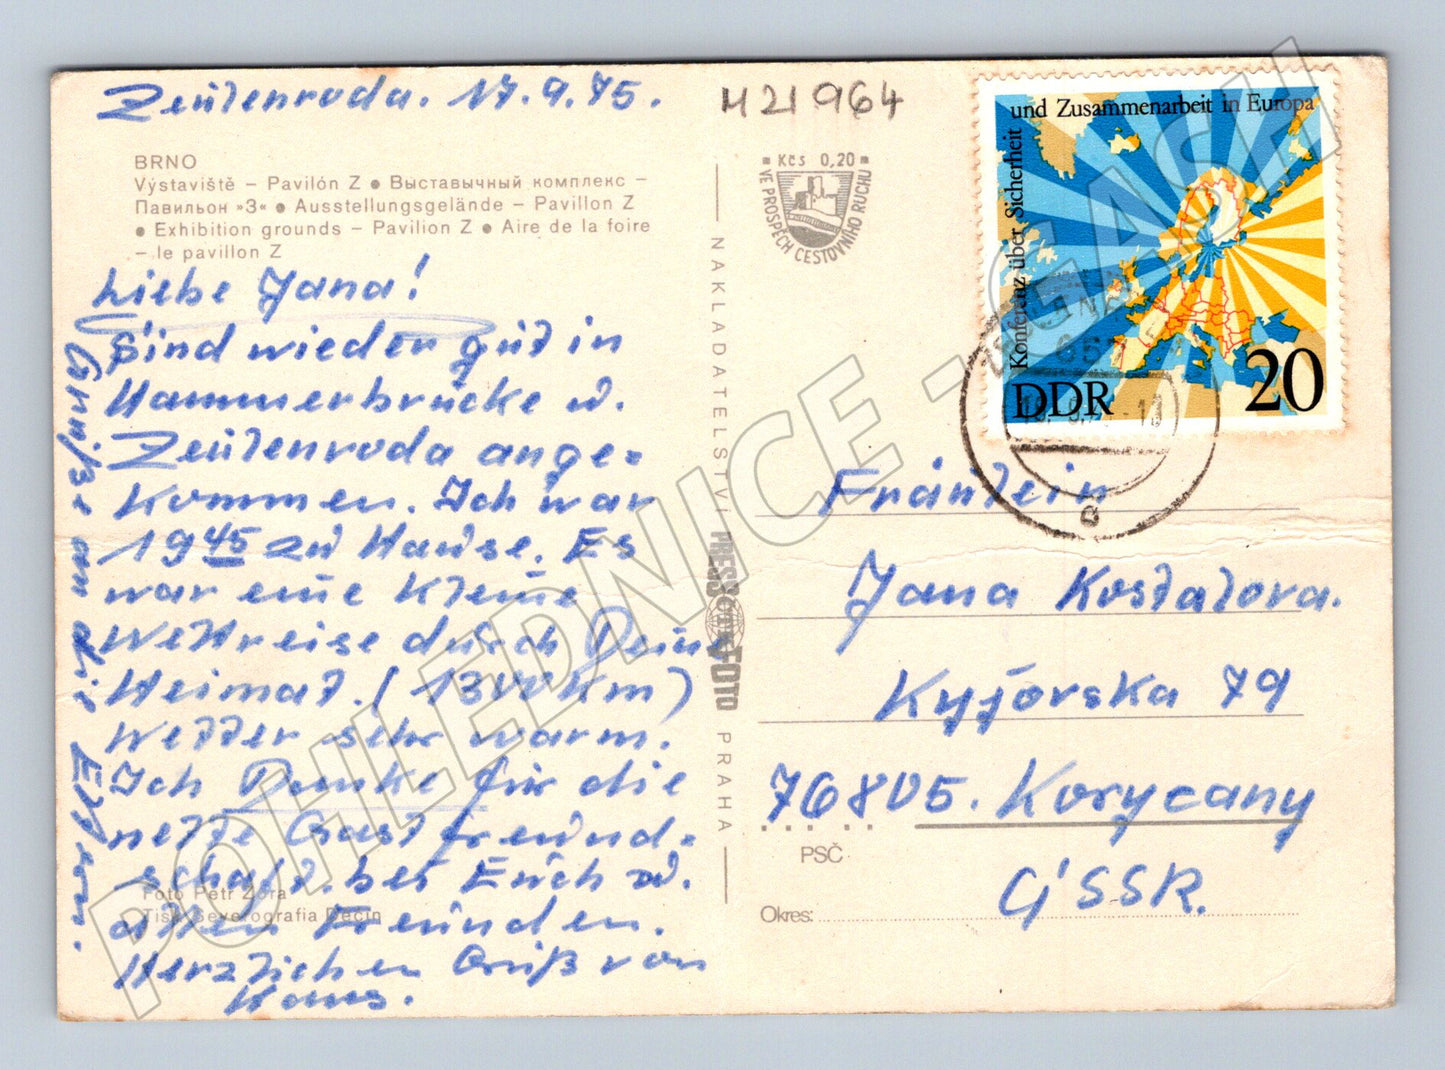 Zeulenroda. 17.9.75.
M21964
BRNO
Výstaviště – Pavilón Z ● Выставычный комплекс –
Павильон »З« ● Ausstellungsgelände – Pavillon Z
● Exhibition grounds – Pavilion Z ● Aire de la foire
– le pavillon Z
Liebe Jana!
Sind wieder gut in
Hammerbrücke u.
Zeulenroda ange=
kommen. Ich war
19 45 zu Hause. Es
war eine kleine
Weltreise durch Deine
Heimat. (1300 km)
Wetter sehr warm.
Ich Danke für die
nette Gastfreund=
schaft. bei Euch u.
allen Freunden.
Herzlichen Gruß von
Hans.
Foto Petr Zora
Tisk Severografia Děcín
Kčs 0,20
VE PROSPĚCH CESTOVNÍHO RUCHU
NAKLADATELSTVÍ PRESSFOTO PRAHA
Konferenz über Sicherheit
und Zusammenarbeit in Europa
DDR 20
657
c
Fräulein
Jana Kostalova.
Kyjovska 79
76805. Korycany
PSČ
ČSSR.
Okres:
POHLEDNICE - 4SEASH